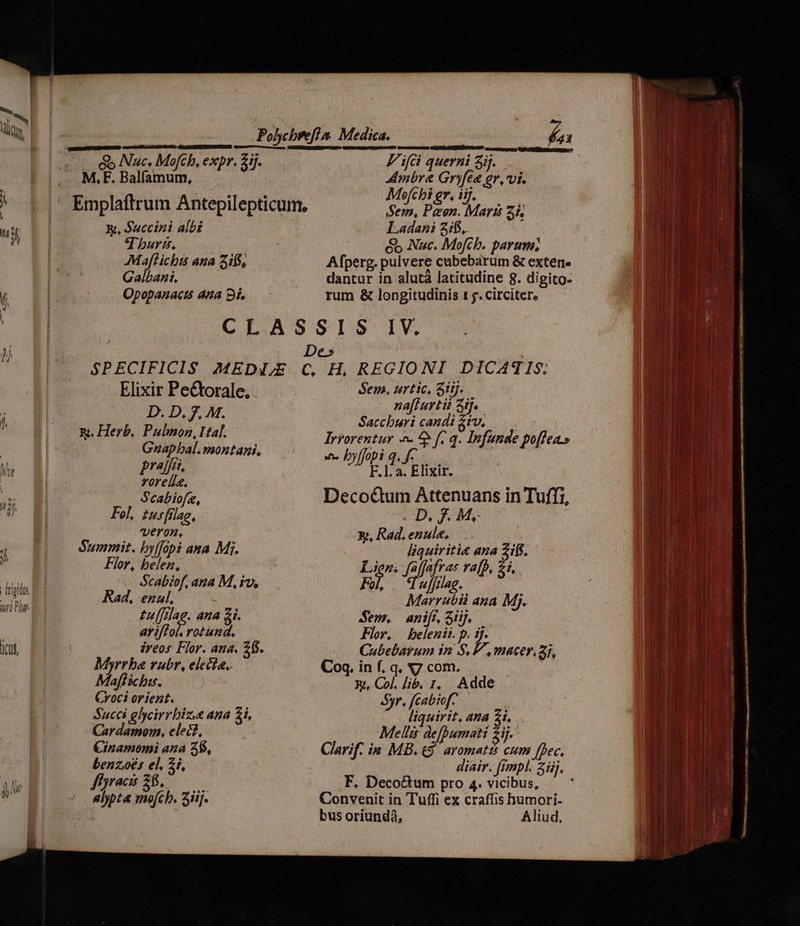 Polychrefta Medica. 641
& Nuc. Moſch, expr. ʒij.
M, F. Balſamum,
Emplaſtrum Antepilepticum,
℞, Succini albi
Thuris,
Maſtichis ana ʒiß,
Galbani,
Opopanacis ana ℈i.
Viſci querni ʒij.
Ambræ Gryſeæ gr, vi.
Moſchi gr, iij,
Sem, Pæon. Maris ʒi,
Ladani ʒiß,
& Nuc. Moſch. parum;
Aſperg. pulvere cubebarum & exten-
dantur in alutâ latitudine 8. digito-
rum & longitudinis 15. circiter,
CLASSIS IV.
De
SPECIFICIS MEDIÆ C, H, REGIONI DICATIS:
Elixir Pectorale,
D. D. J, M.
℞. Herb. Pulmon, Ital.
Gnaphal. montani,
praſſii,
rorellæ,
Scabioſæ,
Fol, tuſſilag,
veron,
Summit. hyſſopi ana Mj.
Flor, helen,
Scabioſ, ana M, iv,
Rad, enul,
tuſſilag. ana ʒi.
ariſtol. rotund.
ireos Flor. ana. ʒß.
Myrrhæ rubr, electæ,
Maſtichis.
Croci orient.
Succi glycirrhizæ ana ʒi,
Cardamom, elect,
Cinamomi ana ʒß,
benzoës el, ʒi,
ſtyracis ʒß,
alyptæ moſch. ʒiij.
Sem, urtic, ʒiij.
naſturtii ʒij.
Sacchari candi ʒiv,
Irrorentur & ſ. q. Infunde poſtea
hyſſopi q. ſ.
F. l. a. Elixir.
Decoctum Attenuans in Tuſſi,
D, J. M,
℞, Rad, enulæ,
liquiritiæ ana ʒiß.
Lign. ſaſſafras raſp, ʒi,
Fol, Tuſſilag.
Marrubii ana Mj.
Sem, aniſi, ʒiij,
Flor, helenii. p. ij.
Cubebarum in S. V, macer. ʒi,
Coq. in ſ. q. com.
℞, Col. lib, 1, Adde
Syr. ſcabioſ.
liquirit, ana ʒi,
Mellis deſpumati ʒij.
Clarif. in MB. & aromatis cum ſpec,
diair. ſimpl. ʒiij,
F. Decoctum pro 4. vicibus,
Convenit in Tuſſi ex craſſis humori-
bus oriundâ, Aliud,